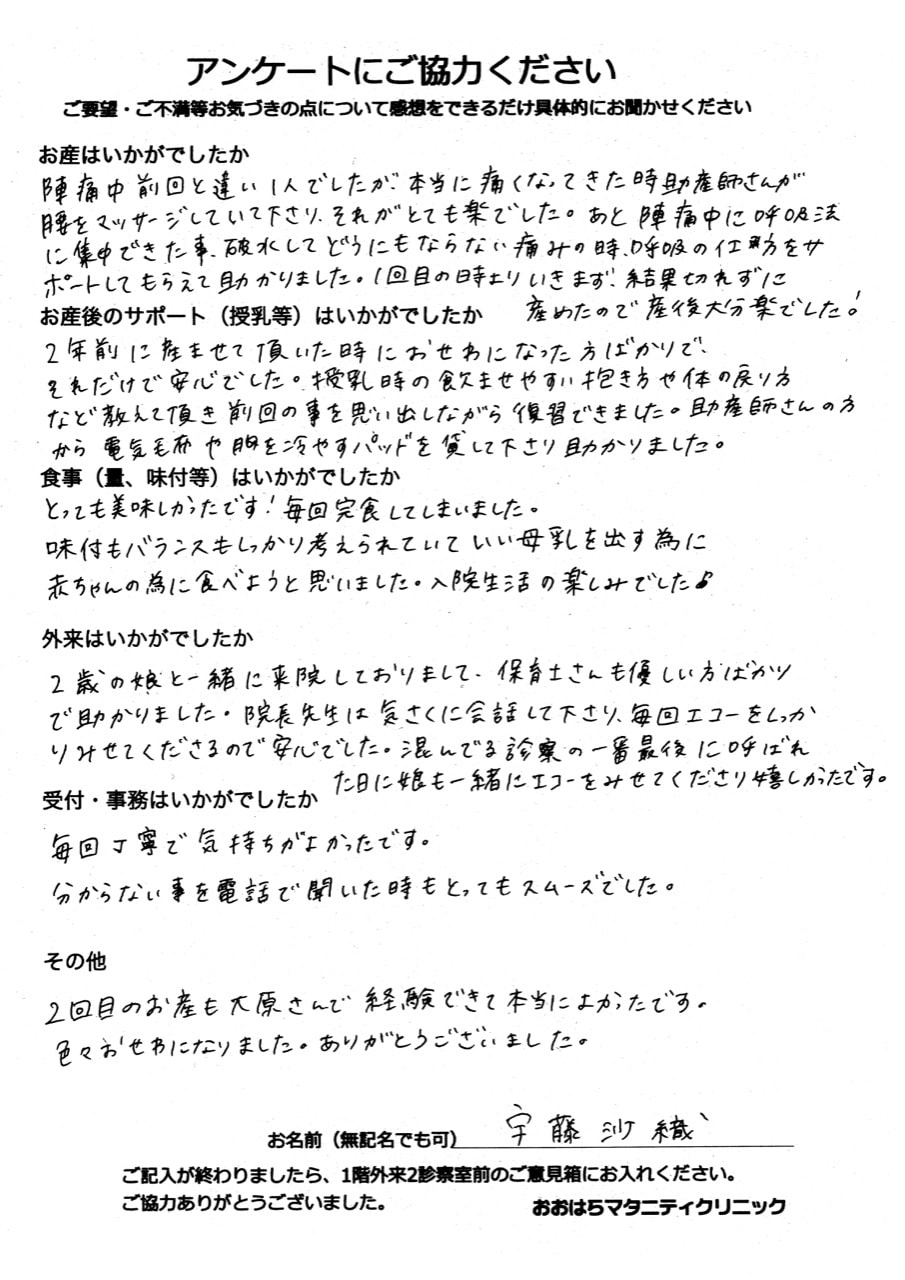 アンケートにご協力ください
ご要望・ご不満等お気づきの点について感想をできるだけ具体的にお聞かせください
お産はいかがでしたか
陣痛中前回と違い1人でしたが、本当に痛くなってきた時助産師さんが
腰をマッサージしていて下さり、それがとても楽でした。あと陣痛中に呼吸法
に集中できた事、破水してどうにもならない痛みの時、呼吸の仕方をサ
ポートしてもらえて助かりました。1回目の時よりいきまず、結果切れずに
産めたので産後大分楽でした!
お産後のサポート（授乳等）はいかがでしたか
2年前に産ませて頂いた時におせわになった方ばかりで、
それだけで安心でした。授乳時の飲ませやすい抱き方や体の戻り方
など教えて頂き前回の事を思い出しながら復習できました。助産師さんの方
から電気毛布や胸を冷やすパッドを貸して下さり助かりました。
食事（量、味付等）はいかがでしたか
とっても美味しかったです!毎回完食してしまいました。
味付もバランスもしっかり考えられていていい母乳を出す為に
赤ちゃんの為に食べようと思いました。入院生活の楽しみでした♪
外来はいかがでしたか
2歳の娘と一緒に来院しておりまして、保育士さんも優しい方ばかり
で助かりました。院長先生は気さくに会話して下さり、毎回エコーをしっか
りみせてくださるので安心でした。混んでる診察の一番最後に呼ばれ
た日に娘も一緒にエコーをみせてくださり嬉しかったです。
受付・事務はいかがでしたか
毎回丁寧で気持ちがよかったです。
分からない事を電話で聞いた時もとってもスムーズでした。
その他
2回目のお産も大原さんで経験できて本当によかったです。
色々おせわになりました。ありがとうございました。
お名前（無記名でも可） 宇藤沙織
ご記入が終わりましたら、1階外来2診察室前のご意見箱にお入れください。
ご協力ありがとうございました。
おおはらマタニティクリニック